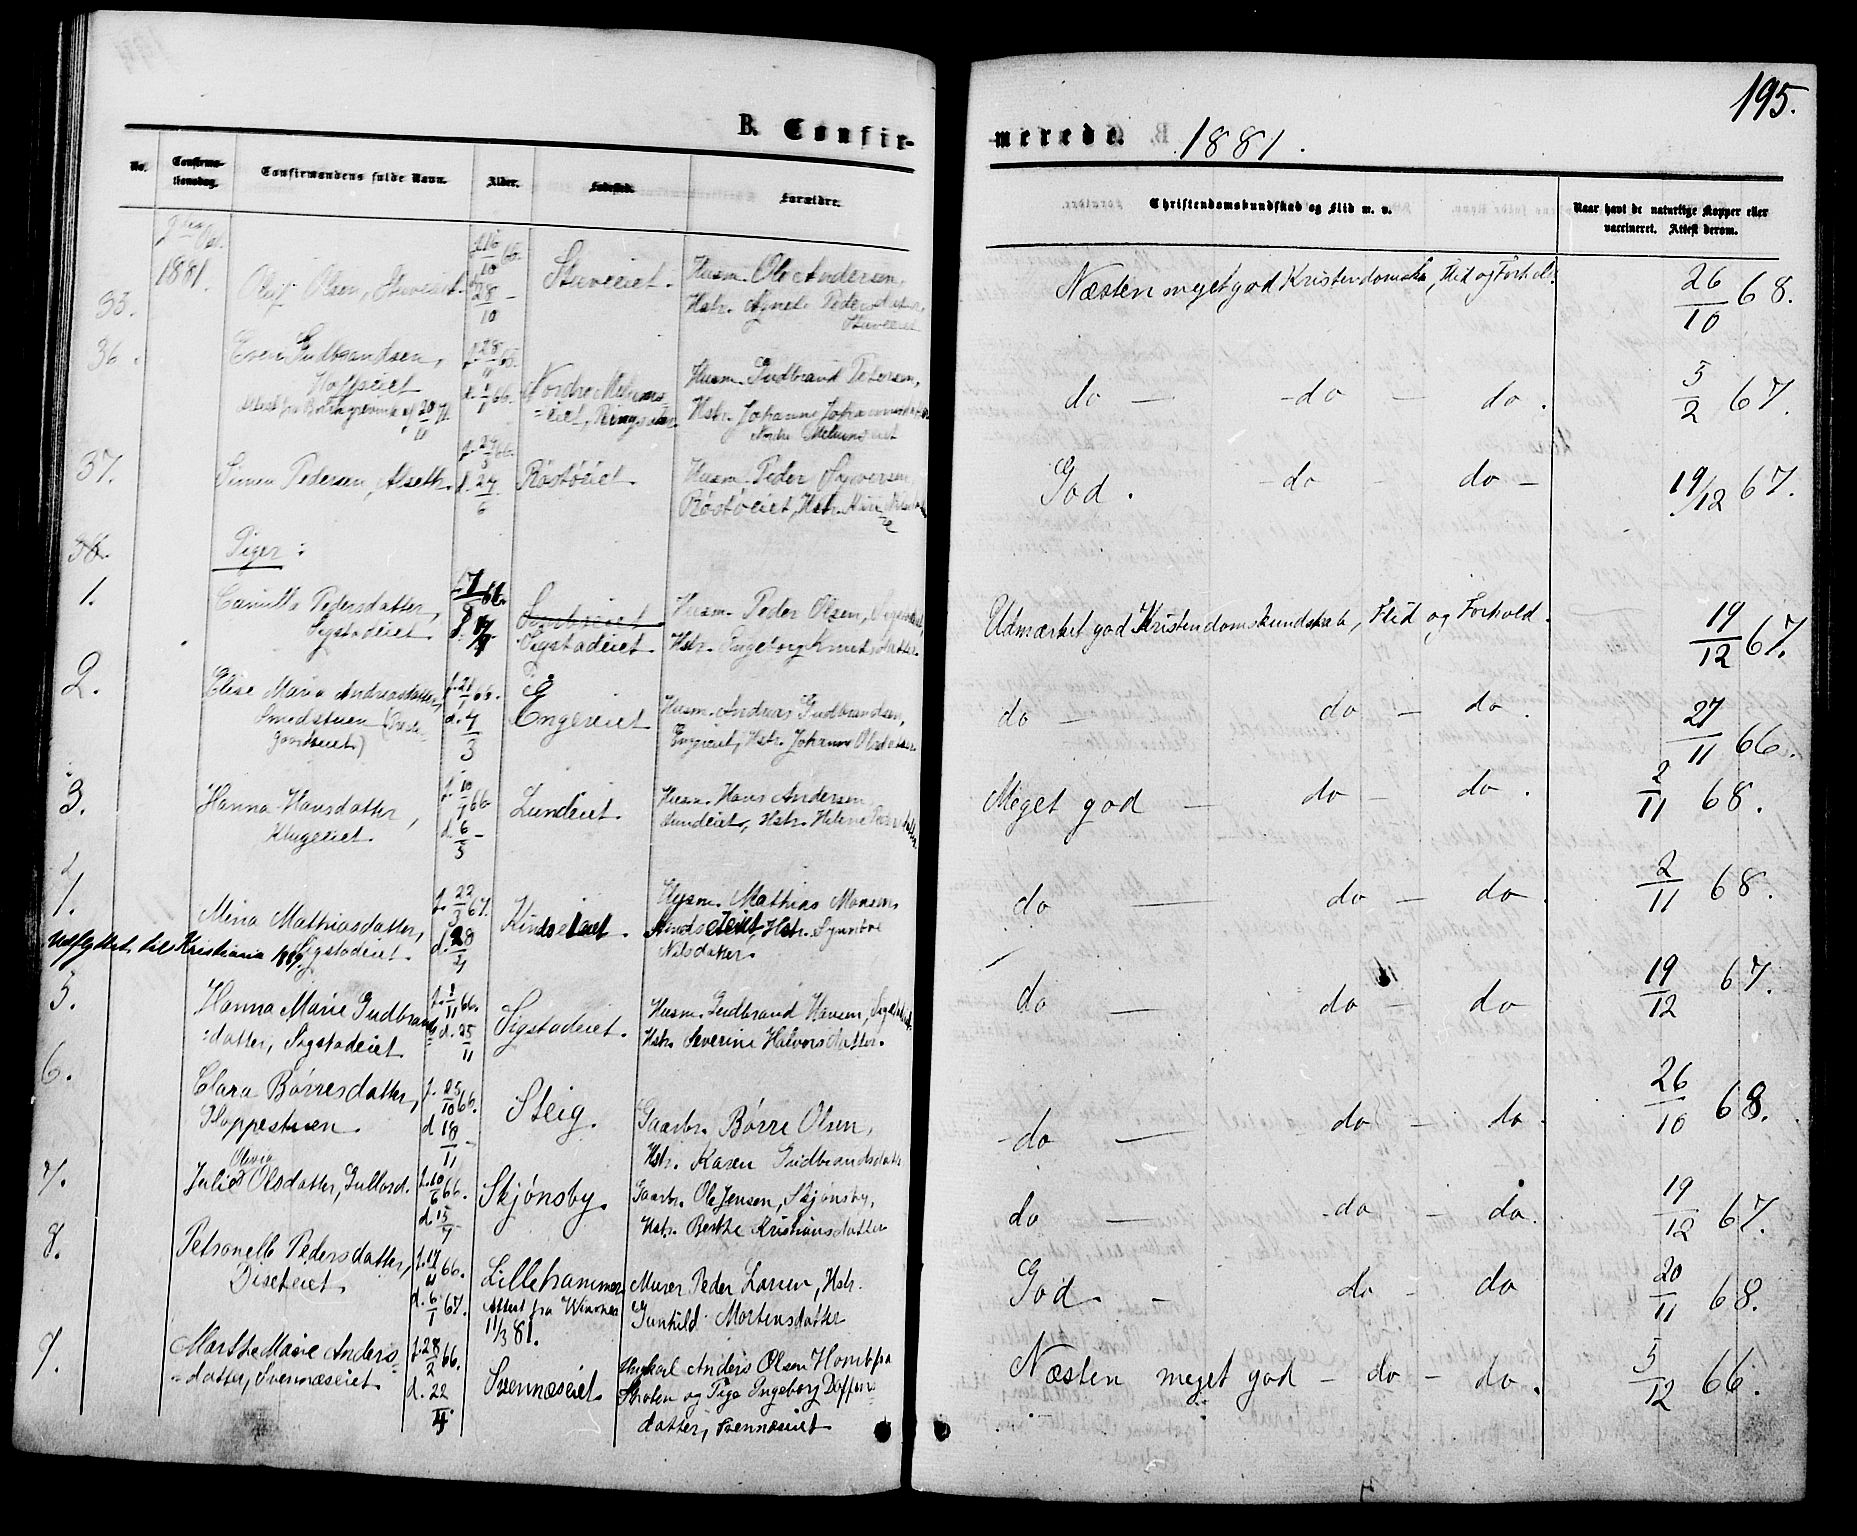 195.
B. Confirmerede. 1881.
No.
Confirmationsdag.
Confirmandens fulde Navn.
Alder.
Fødested.
Forældre.
Christendomskundskab og Flid m. v.
Naar havt de naturlige Kopper eller vaccineret. Attest derom.
1881.
35.
Oluf Olsen, Stuveiet.
f. 16/10 66.
d. 28/10 –
Stuveiet.
Husm. Ole Andersen,
Hstr. Agnete Pedersdatter,
Stuveeiet
Næsten meget god Kristendomsk., Flid og Forhold.
26/10 68.
36.
Even Gudbrandsen,
Hoffseiet
d. 1/1 66.
Nordre Melums-
=eiet, Ringsaker
Husm. Gudbrand Petersen,
Hstr. Johanne
Nordre Melumseiet
do – do – do.
5/2 67.
37.
Simen Pedersen, Alseth.
d. 24/6
Røstøeiet.
Husm. Peder Syversen,
Røstøeiet, Hstr.
God. – do – do –
19/12 67.
38.
Piger:
1.
Camilla Pedersdatter,
Sigstadeiet.
Sigstadeiet.
Husm. Peder Olsen,
Hstr. Ingeborg Knutsdatter.
Udmærket god Kristendomskundskab, Flid og Forhold.
19/12 67.
2.
Elise Maria Andreasdatter,
Smedstuen
gaardseiet)
f. 21/1 66.
d. 4/3
Engeeiet
Husm. Andreas Gudbrandsen,
Engeeiet, Hstr. Johanne Olsdatter
do – do – do.
27/11 66.
3.
Hanna Hansdatter,
Klugeeiet.
f. 10/4 66
d. 6/5 –
Lundeiet.
Husm. Hans Andersen
Lundeiet, Hstr. Helene Pedersdatter
Meget god – do – do.
2/11 68.
4.
Mina Mathiasdatter,
Sigstadeiet.
Udflyttet til Kristiania
f. 22/3 67.
d. 28/4
Kindseiet.
Husm. Mathias Monsen
Kindseiet, Hstr. Synnøve
Nilsdatter.
do – do – do
2/11 68.
5.
Hanna Marie Gudbrands-
=datter, Sigstadeiet
f. 1/11 66.
d. 25/11
Sigstadeiet.
Husm. Gudbrand Hansen, Sigstadeiet
Hstr. Severine Halvorsdatter.
do – do – do
19/12 67.
6.
Clara Børresdatter,
Kloppestuen.
f. 25/10 66.
d. 18/11 –
Steig.
Gaarbr. Børre Olsen,
Hstr. Karen Gudbrandsdatter
do – do – do.
26/10 68.
7.
Olivia
Julie Olsdatter, Gullord.
f. 10/6 66.
d. 15/7
Skjønsby.
Gaarbr. Ole Jensen, Skjønsby,
Hstr. Berthe Kristiansdatter
do – do – do.
19/12 67.
8.
Petronelle Pedersdatter,
Diseteiet.
f. 14/11 66.
d. 6/1 67.
Lillehammer
Attest fra
11/3 81.
Murer Peder Larsen, Hstr.
Gunhild Mortensdatter
God. – do – do
20/11 68.
9.
Marthe Marie Anders-
=datter, Svennæseiet
f. 28/2 66.
d. 22/4.
Svennæseiet
Ungkarl Anders Olsen Homb fra
Skolen og Pige Ingeborg Doffen-
datter, Svennæseiet
Næsten meget god – do – do.
5/12 66.